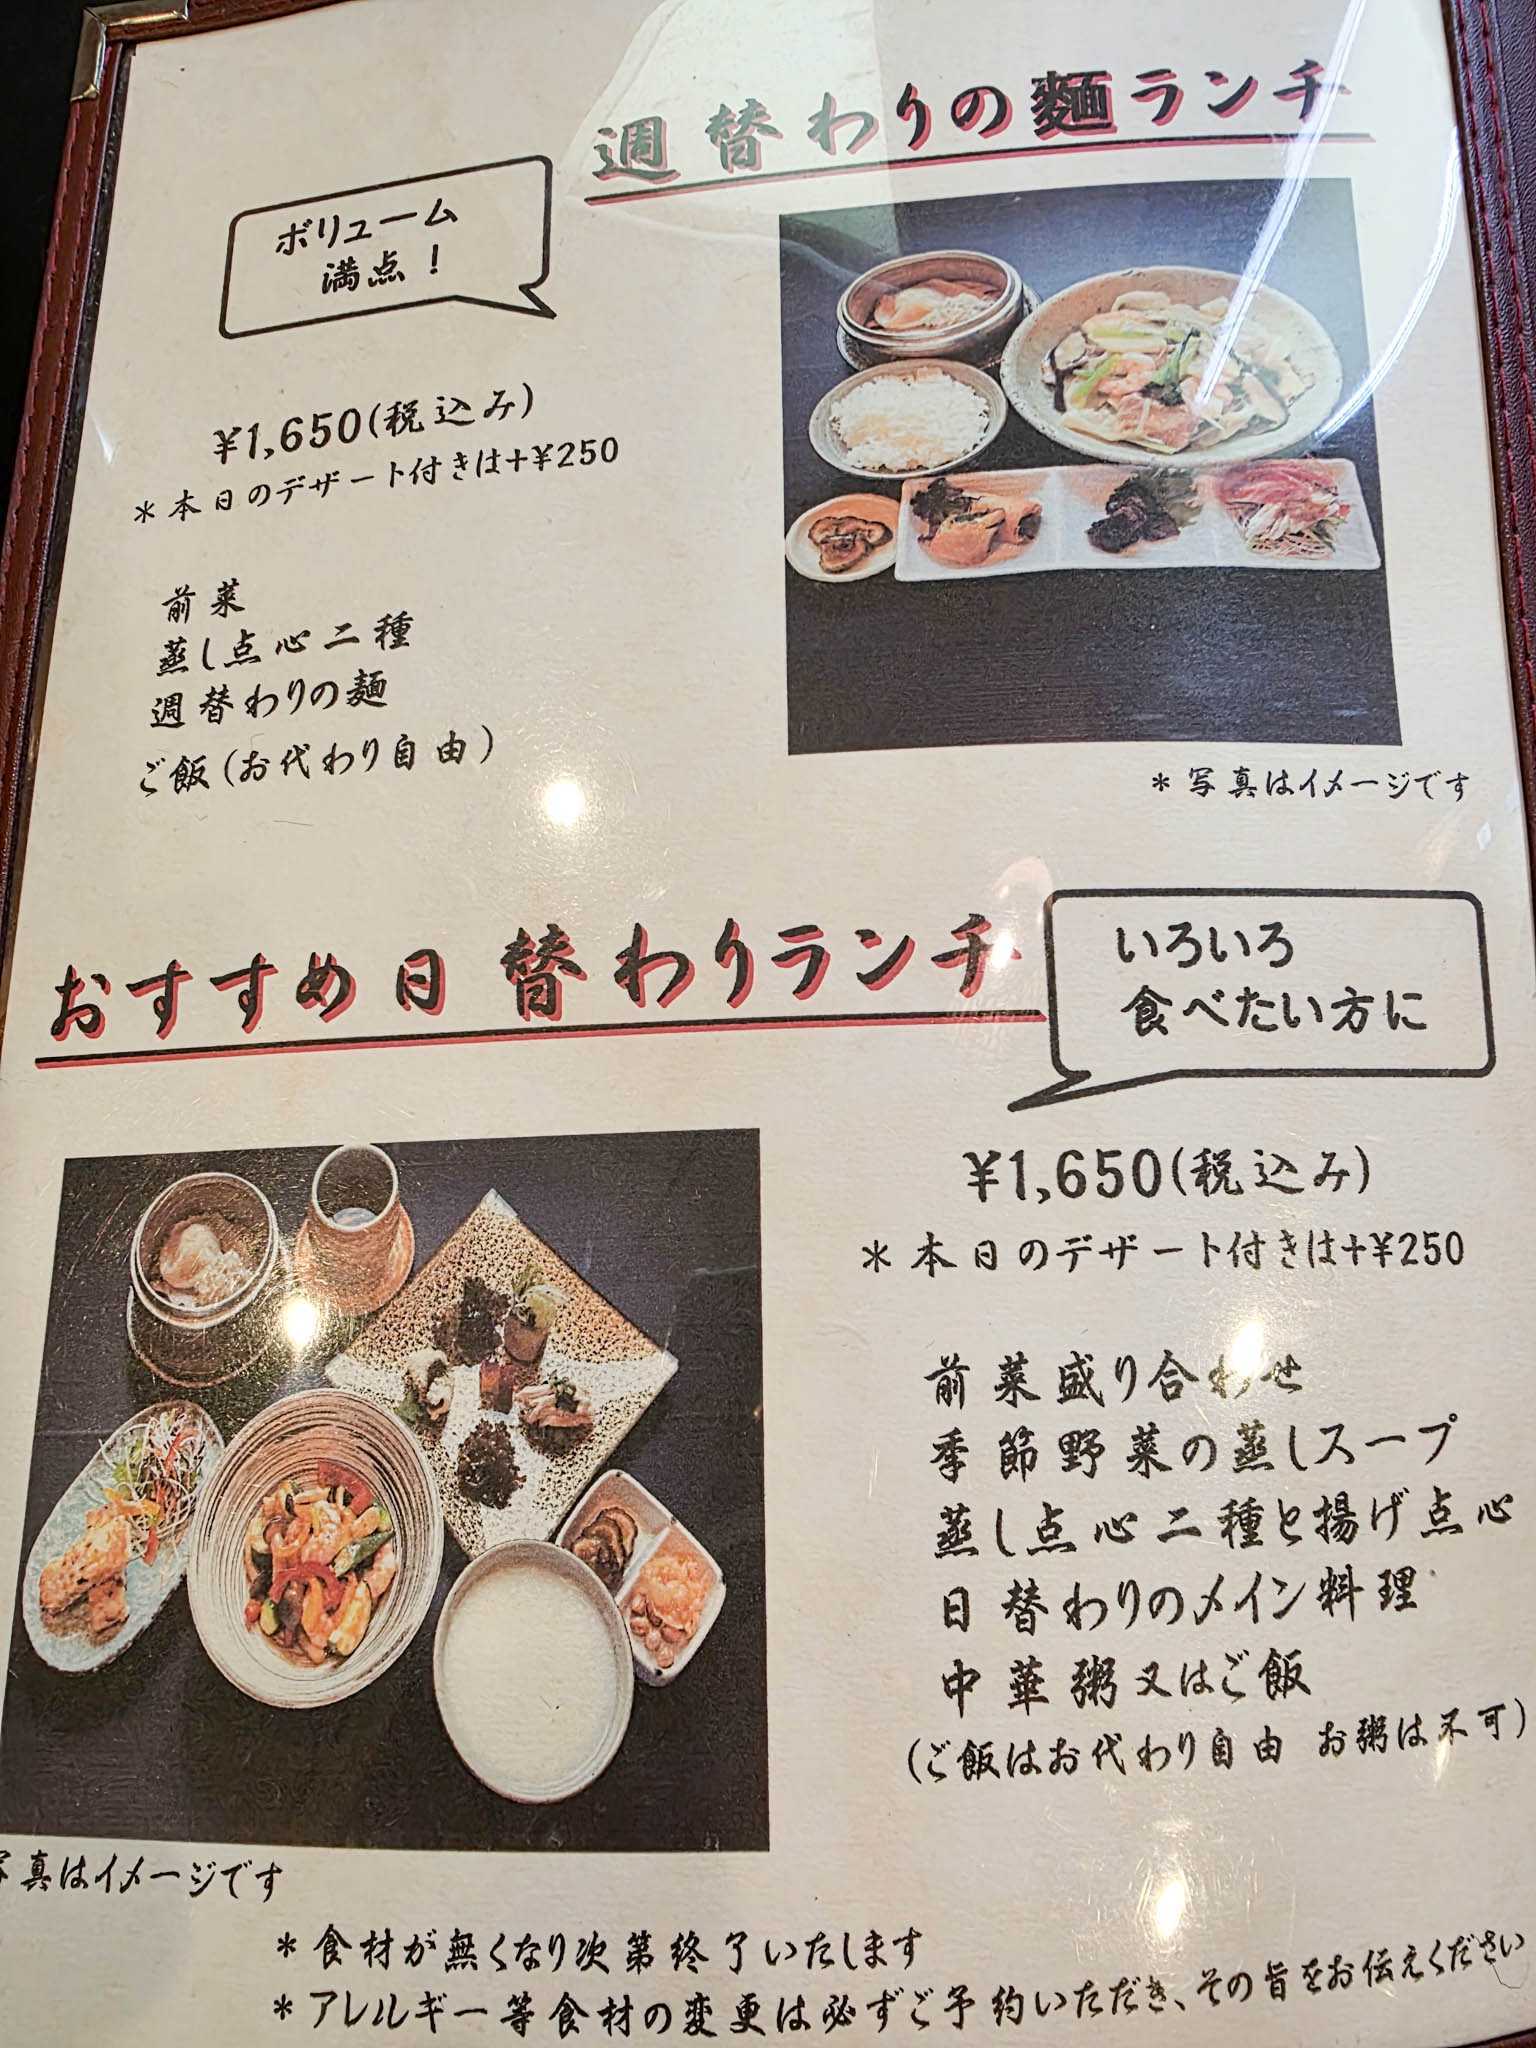 週替わりの麺ランチ
ボリューム
満点！
¥1,650(税込み)
＊本日のデザート付きは+¥250
前菜
蒸し点心二種
週替わりの麺
ご飯(お代わり自由)
＊写真はイメージです
おすすめ日替わりランチ
いろいろ
食べたい方に
¥1,650(税込み)
＊本日のデザート付きは+¥250
前菜盛り合わせ
季節野菜の蒸しスープ
蒸し点心二種と揚げ点心
日替わりのメイン料理
中華粥又はご飯
(ご飯はお代わり自由 お粥は不可)
写真はイメージです
＊食材が無くなり次第終了いたします
＊アレルギー等食材の変更は必ずご予約いただき、その旨をお伝えください